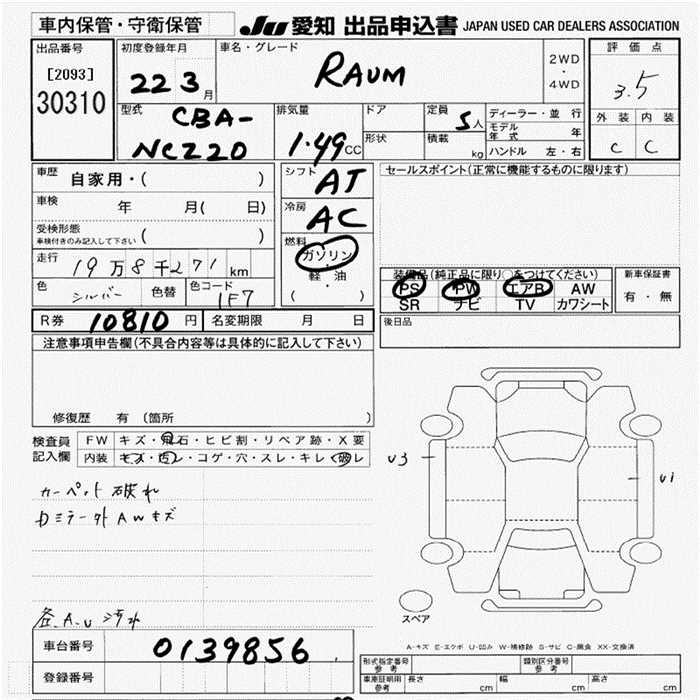 車内保管・守衛保管
JU 愛知 出品申込書 JAPAN USED CAR DEALERS ASSOCIATION
出品番号
[2093]
30310
初度登録年月
22 3 月
車名・グレード
RAUM
2WD
・
4WD
評価点
3.5
外装 内装
C C
型式
CBA-
NCZ20
排気量
1.49 CC
ドア
形状
定員
5人
積載
kg
ディーラー・並行
モデル年式 年
ハンドル 左・右
車歴
自家用・( )
車検
年 月( 日)
受検形態
車検付きのみ記入して下さい ( )
走行
19万8千271 km
色
シルバー
色替
色コード
1F7
シフト
AT
冷房
AC
燃料
ガソリン
軽・油
( )
セールスポイント(正常に機能するものに限ります)
装備品(純正品に限り○をつけてください)
PS PW エアB AW
SR ナビ TV カワシート
新車保証書
有・無
後日品
R券 10810 円 名変期限 月 日
注意事項申告欄(不具合内容等は具体的に記入して下さい)
修復歴 有 (箇所 )
検査員
記入欄
FW キズ・飛石・ヒビ割・リペア跡・X要
内装 キズ・汚レ・コゲ・穴・スレ・キレ・破レ
カーペット破れ
Dミラー外AWキズ
U3
U1
スペア
A-キズ E-エクボ U-凹み W-補修跡 S-サビ C-腐食 XX-交換済
車台番号
0139856
登録番号
形式指定番号
参考
類別区分番号
参考
車庫証明用
参考
長さ cm 幅 cm 高さ cm